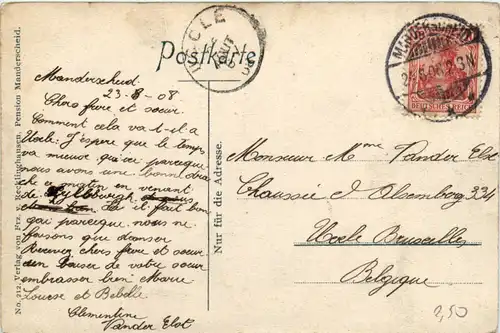 UCCLE
AOUT
08
Postkarte
MANDERSCHEID
DEUTSCHES REICH
Manderscheid.
23-8-08
Chers frere et soeur.
Comment cela va t-il a
Uccle. J'espere que le temps
va mieux qu'ici parceque
nous avons une bonne
ce matin en venant
de
et il fait bien
gai parceque nous ne
faisons que danser
Recever chers frere et soeur
un Baiser de votre soeur
embrasser bien Marie
Louese et Bebelle
Clementine
Vander Elst
Monsieur M me Vander Elst
Chaussée d'Alsemberg 334
Uccle Bruxelles
Belgique
2,50
Nur für die Adresse.
No. 212. Verlag von Frz. Recklinghausen, Pension Manderscheid.